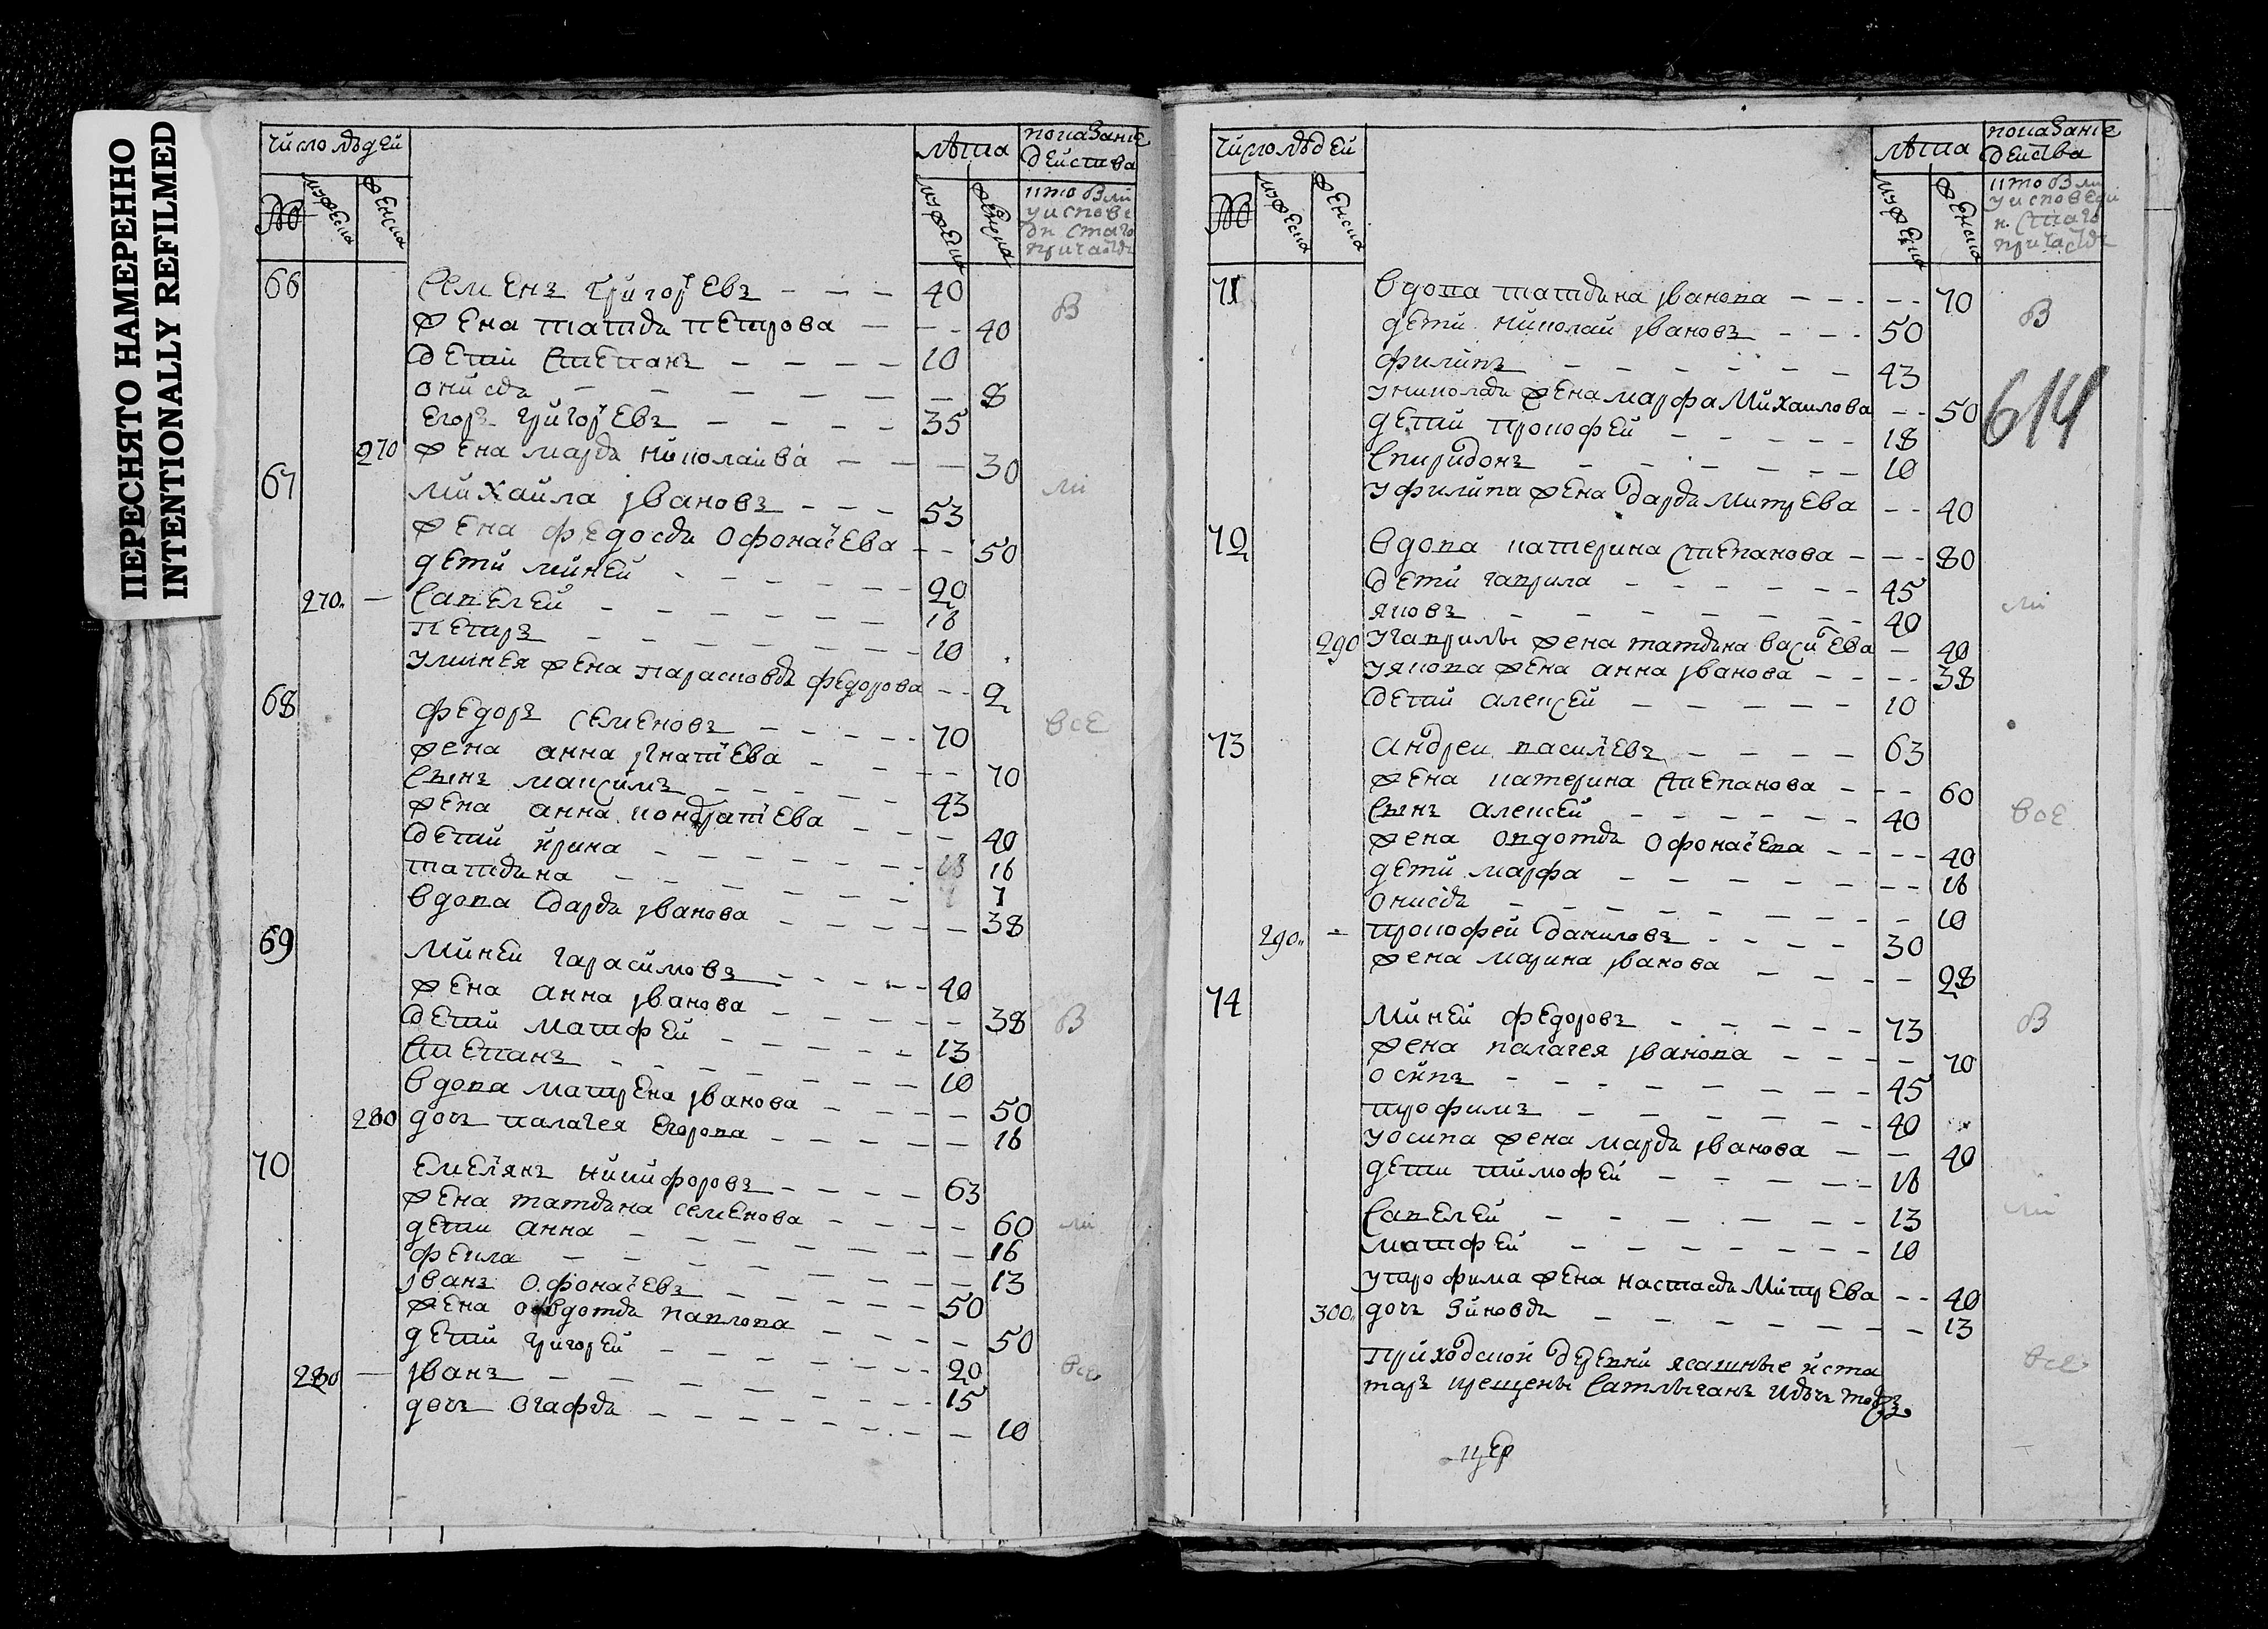 ПЕРЕСНЯТО НАМЕРЕННО
INTENTIONALLY REFILMED
число людей
лѣта
показание
действа
№
мужеска
женска
мужеска
женска
кто были
у исповѣ
ди и стаго
причастия
66 Семенъ Григорьевъ 40 В
жена татия петрова 40
дети степанъ 10
онисья 8
Егоръ Григорьевъ 35
270 жена марья николаива 30
67 Михаила Ивановъ 53 ли
жена федосья офонасева 50
дети миней 20
270 - Савелей 16
петръ 10
у минея жена парасковья федорова 2
68 федоръ семеновъ 70 все
жена анна Игнатиева 70
сынъ максимъ 43
жена анна кондратиева 40
дети ирина 16 16
татияна 7 7
вдова дарья иванова 38
69 Миней Гарасимовъ 40
жена анна иванова 38 В
дети матфей 13
степанъ 10
вдова матрена иванова 50
280 дочь палагея егорова 16
70 Емельянъ никифоровъ 63
жена татияна семенова 60 ли
дети анна 16
фекла 13
Иванъ Офонасевъ 50
жена овдотья павлова 50
дети григорей 20 все
280 - Иванъ 15
дочь огафья 10
число людей
лѣта
показание
действа
№
мужеска
женска
мужеска
женска
кто были
у исповеди
и стаго
причастия
71 вдова татияна иванова 70 В
дети николаи ивановъ 50
филипъ 43
614
у николая жена марфа михаилова 50
дети прокофей 18
спиридонъ 10
у филипа жена дарья митрева 40
72 вдова катерина степанова 80
дети гаврила 45 ли
яковъ 40
290 у гаврилы жена татияна васильева 40
у якова жена анна иванова 38
дети алексей 10
73 андреи василевъ 63
жена катерина степанова 60
сынъ алексей 40 все
жена овдотья офонасева 40
дети марфа 16
онисья 10
290 - прокофей даниловъ 30
жена марина иванова 28
74 Миней федоровъ 73 В
жена палагея иванова 70
осипъ 45
трофимъ 40
у осипа жена марья иванова 40
дети тимофей 16
савелей 13 ли
матфей 10
у трофима жена настасья митрева 40
300 дочь зиновья 13
приходской деревни ясашные иста
таръ крещены сатлыганъ все
цер